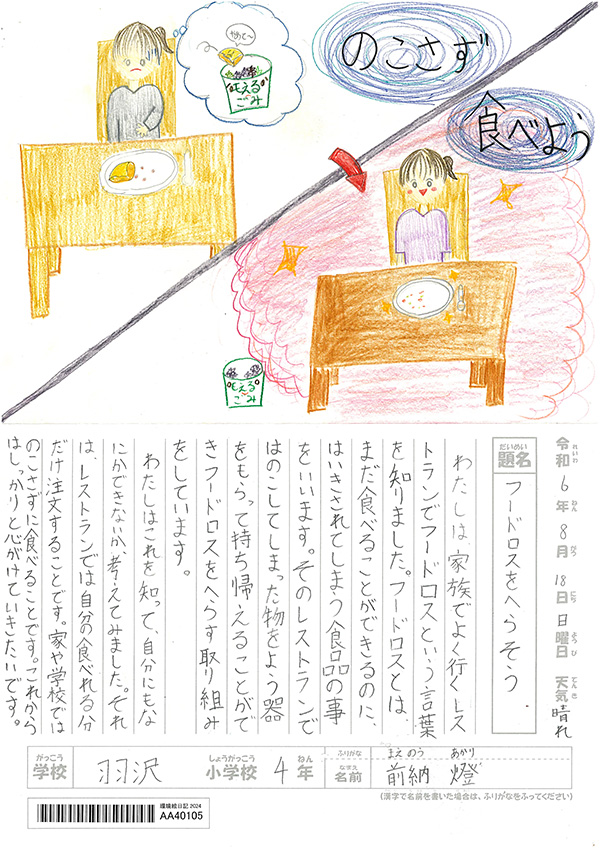 やめて〜
もえる
ごみ
のこさず
食べよう
もえる
ごみ
令和6年8月18日日曜日 天気 晴れ
れいわ ねん がつ にち ようび てんき
だいめい
題名
フードロスをへらそう.
わたしは、家族でよく行くレス
トランでフードロスという言葉
を知りました。フードロスとは、
まだ食べることができるのに、
はいきされてしまう食品の事
をいいます。そのレストランで
はのこしてしまった物をよう器
をもらって持ち帰えることがで
きフードロスをへらす取り組み
をしています。
わたしはこれを知って、自分にもな
にかできないか、考えてみました。それ
は、レストランでは自分の食べれる分
だけ注文することです。家や学校では
のこさずに食べることです。これから
はしっかりと心がけていきたいです。
がっこう
学校
羽沢
しょうがっこう
小学校
4
ねん
年
ふりがな
まえのう あかり
なまえ
名前
前納 燈
(漢字で名前を書いた場合は、ふりがなをふってください)
環境絵日記 2024
AA40105